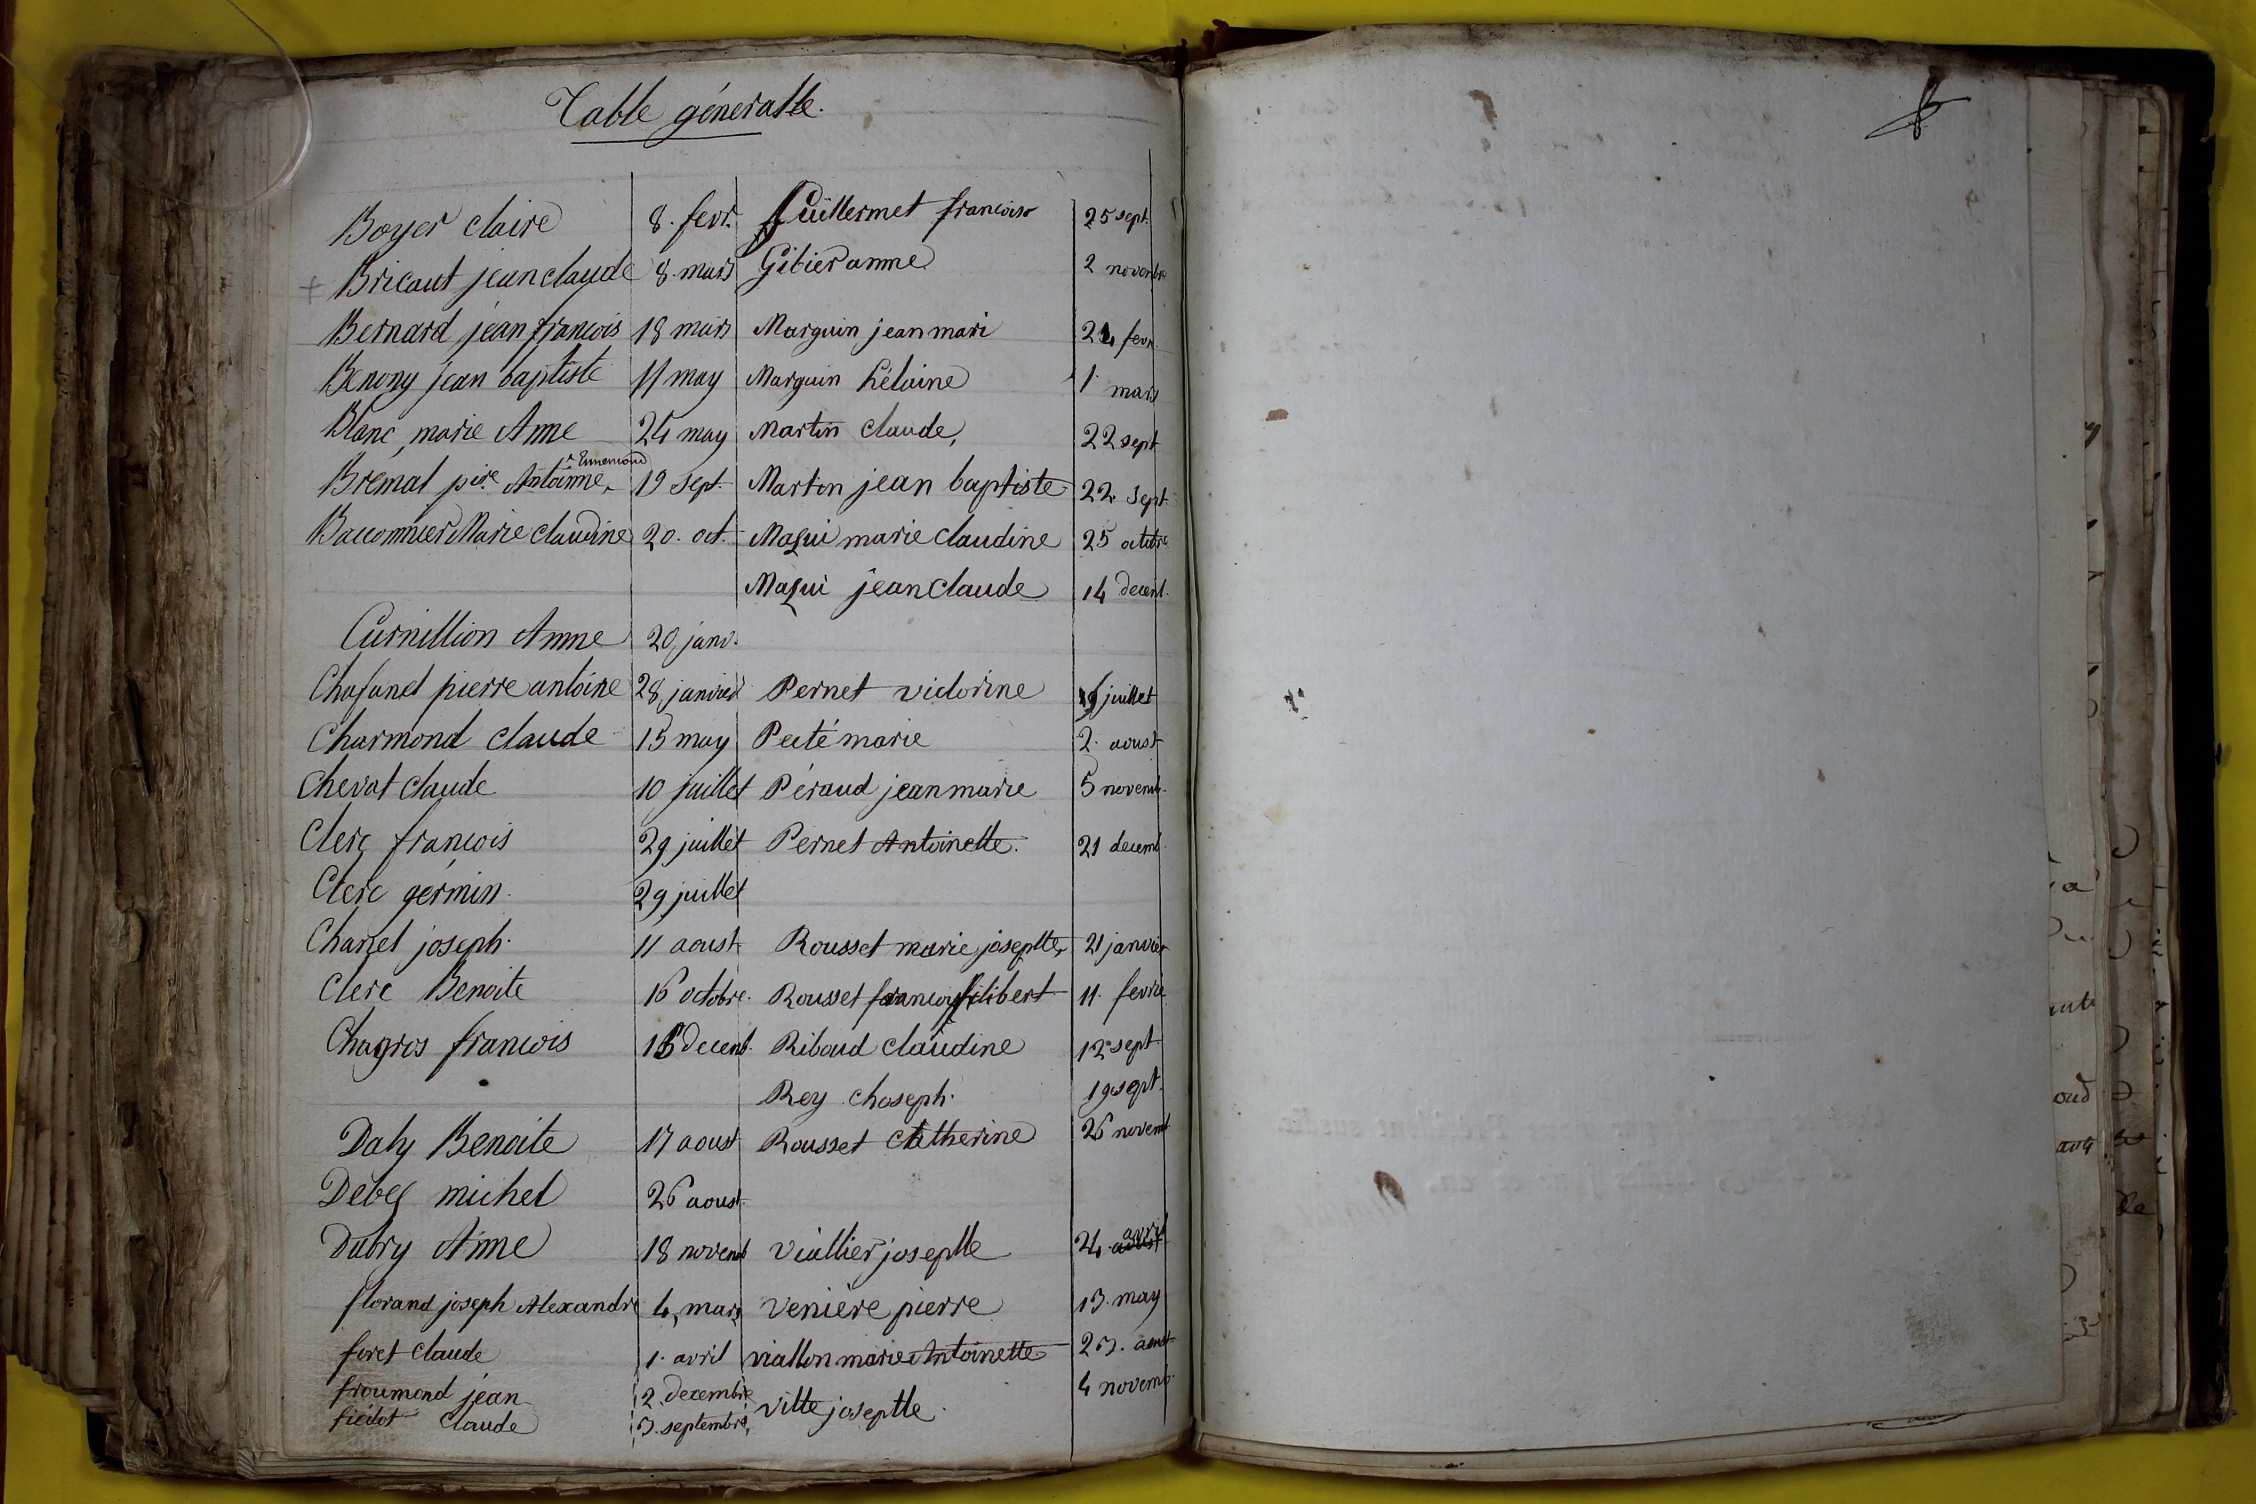 Table généralle.
Boyer claire 8. fevr.
Bricaut jean claude 8. mars
Bernard jean francois 18 mars
Benony jean baptiste 11 may
Blanc marie Anne 24 may
Ennemond
Bremal pire Antoinne 19 sept.
Baccomnier Marie claudine 20. oct.
Curnillion Anne 20 janv.
Chafanel pierre antoine 28 janvier
Charmond claude 15 may
Chevat claude 10 juillet
Clerc francois 29 juillet
Clerc gérmin. 29 juillet
Chanel joseph. 11 aoust
Clerc Benoite 16 octobre.
Chagros francois 16 decemb.
Daly Benoite 17 aoust
Debeş michel 26 aoust
Dubry Anne 18 novemb
florand joseph Alexandre 4 mars
foret claude 1. avril
froumond jean 2. decembre
claude septembre,
Guillermet francois 25 sept.
Gibier anne 2 novembre
Marguin jean mari 24 fevr.
Marguin hélaine 1. mars
Martin claude, 22 sept
Martin jean baptiste 22. sept.
Maşui marie claudine 25 octobre
Maşui jean claude 14 decemb.
Pernet victorine juillet
Peité marie 2. aoust
Péraud jean marie 5 novemb.
Pernet Antoinette. 21 decemb.
Rousset marie joseptte 21 janvier
Rousset francoys filibert 11. fevrie
Riboud claudine 12 sept.
Rey choseph. 19 sept.
Rousset Catherine 26 novemb
Viallier joseptte 24. avril
Venière pierre 13. may
viallon marie Antoinette 23. aoust
Ville joseptte. 4 novemb.